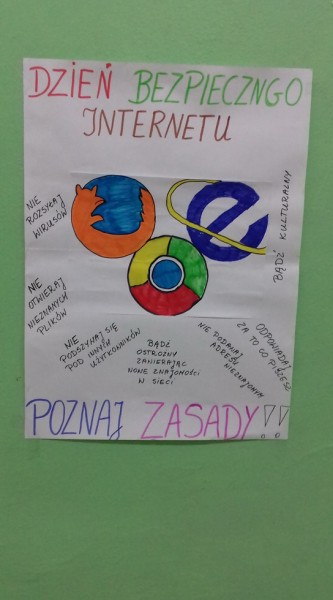 DZIEŃ BEZPIECZNGO
INTERNETU
NIE
ROZSYŁAJ
WIRUSÓW
BĄDŹ KULTURALNY
NIE
OTWIERAJ
NIEZNANYCH
PLIKÓW
NIE
PODSZYWAJ SIĘ
POD INNYCH
UŻYTKOWNIKÓW
BĄDŹ
OSTROŻNY
ZAWIERAJĄC
NOWE ZNAJOMOŚCI
W SIECI
NIE PODAWAJ
ADRESÓW
NIEZNAJOMYM
ODPOWIADAJ
ZA TO CO PISZESZ
POZNAJ ZASADY!!